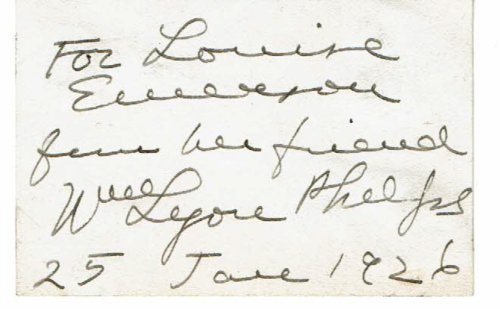 For Louise
Emerson
from her friend
Wm Lyon Phelps
25 Jan 1926